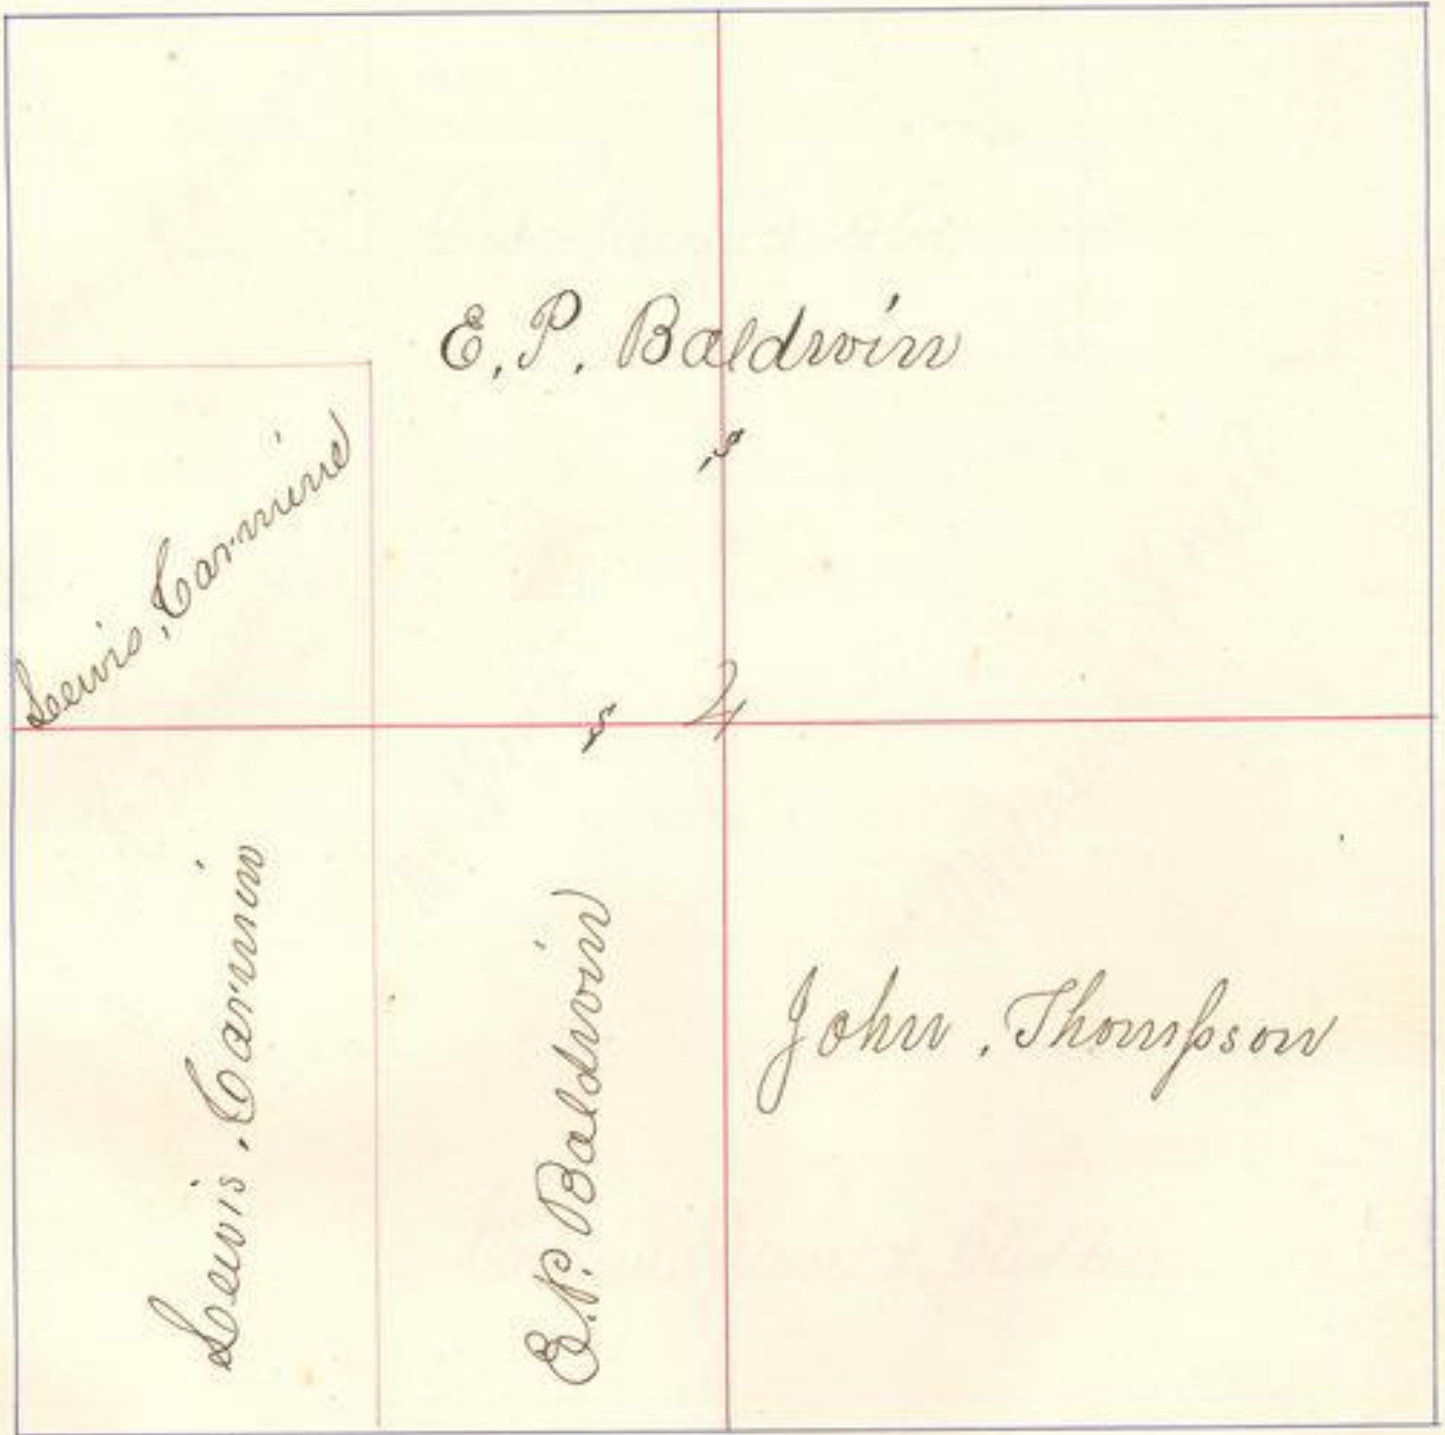 E. P. Baldwin
Lewis, Carmine
4
Lewis, Carmin
E. P. Baldwin
John, Thompson